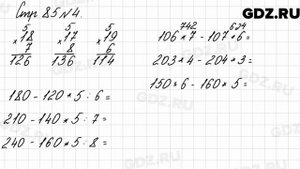 GDZ.RU
Стр. 85 № 4.
5 5 5
×18 ×17 ×19
7 8 6
126 136 114
742 624
106 * 7 - 107 * 6 =
203 * 4 - 204 * 3 =
150 * 6 - 160 * 5 =
180 - 120 * 5 : 6 =
210 - 140 * 5 : 7 =
240 - 160 * 5 : 8 =
GDZ.RU